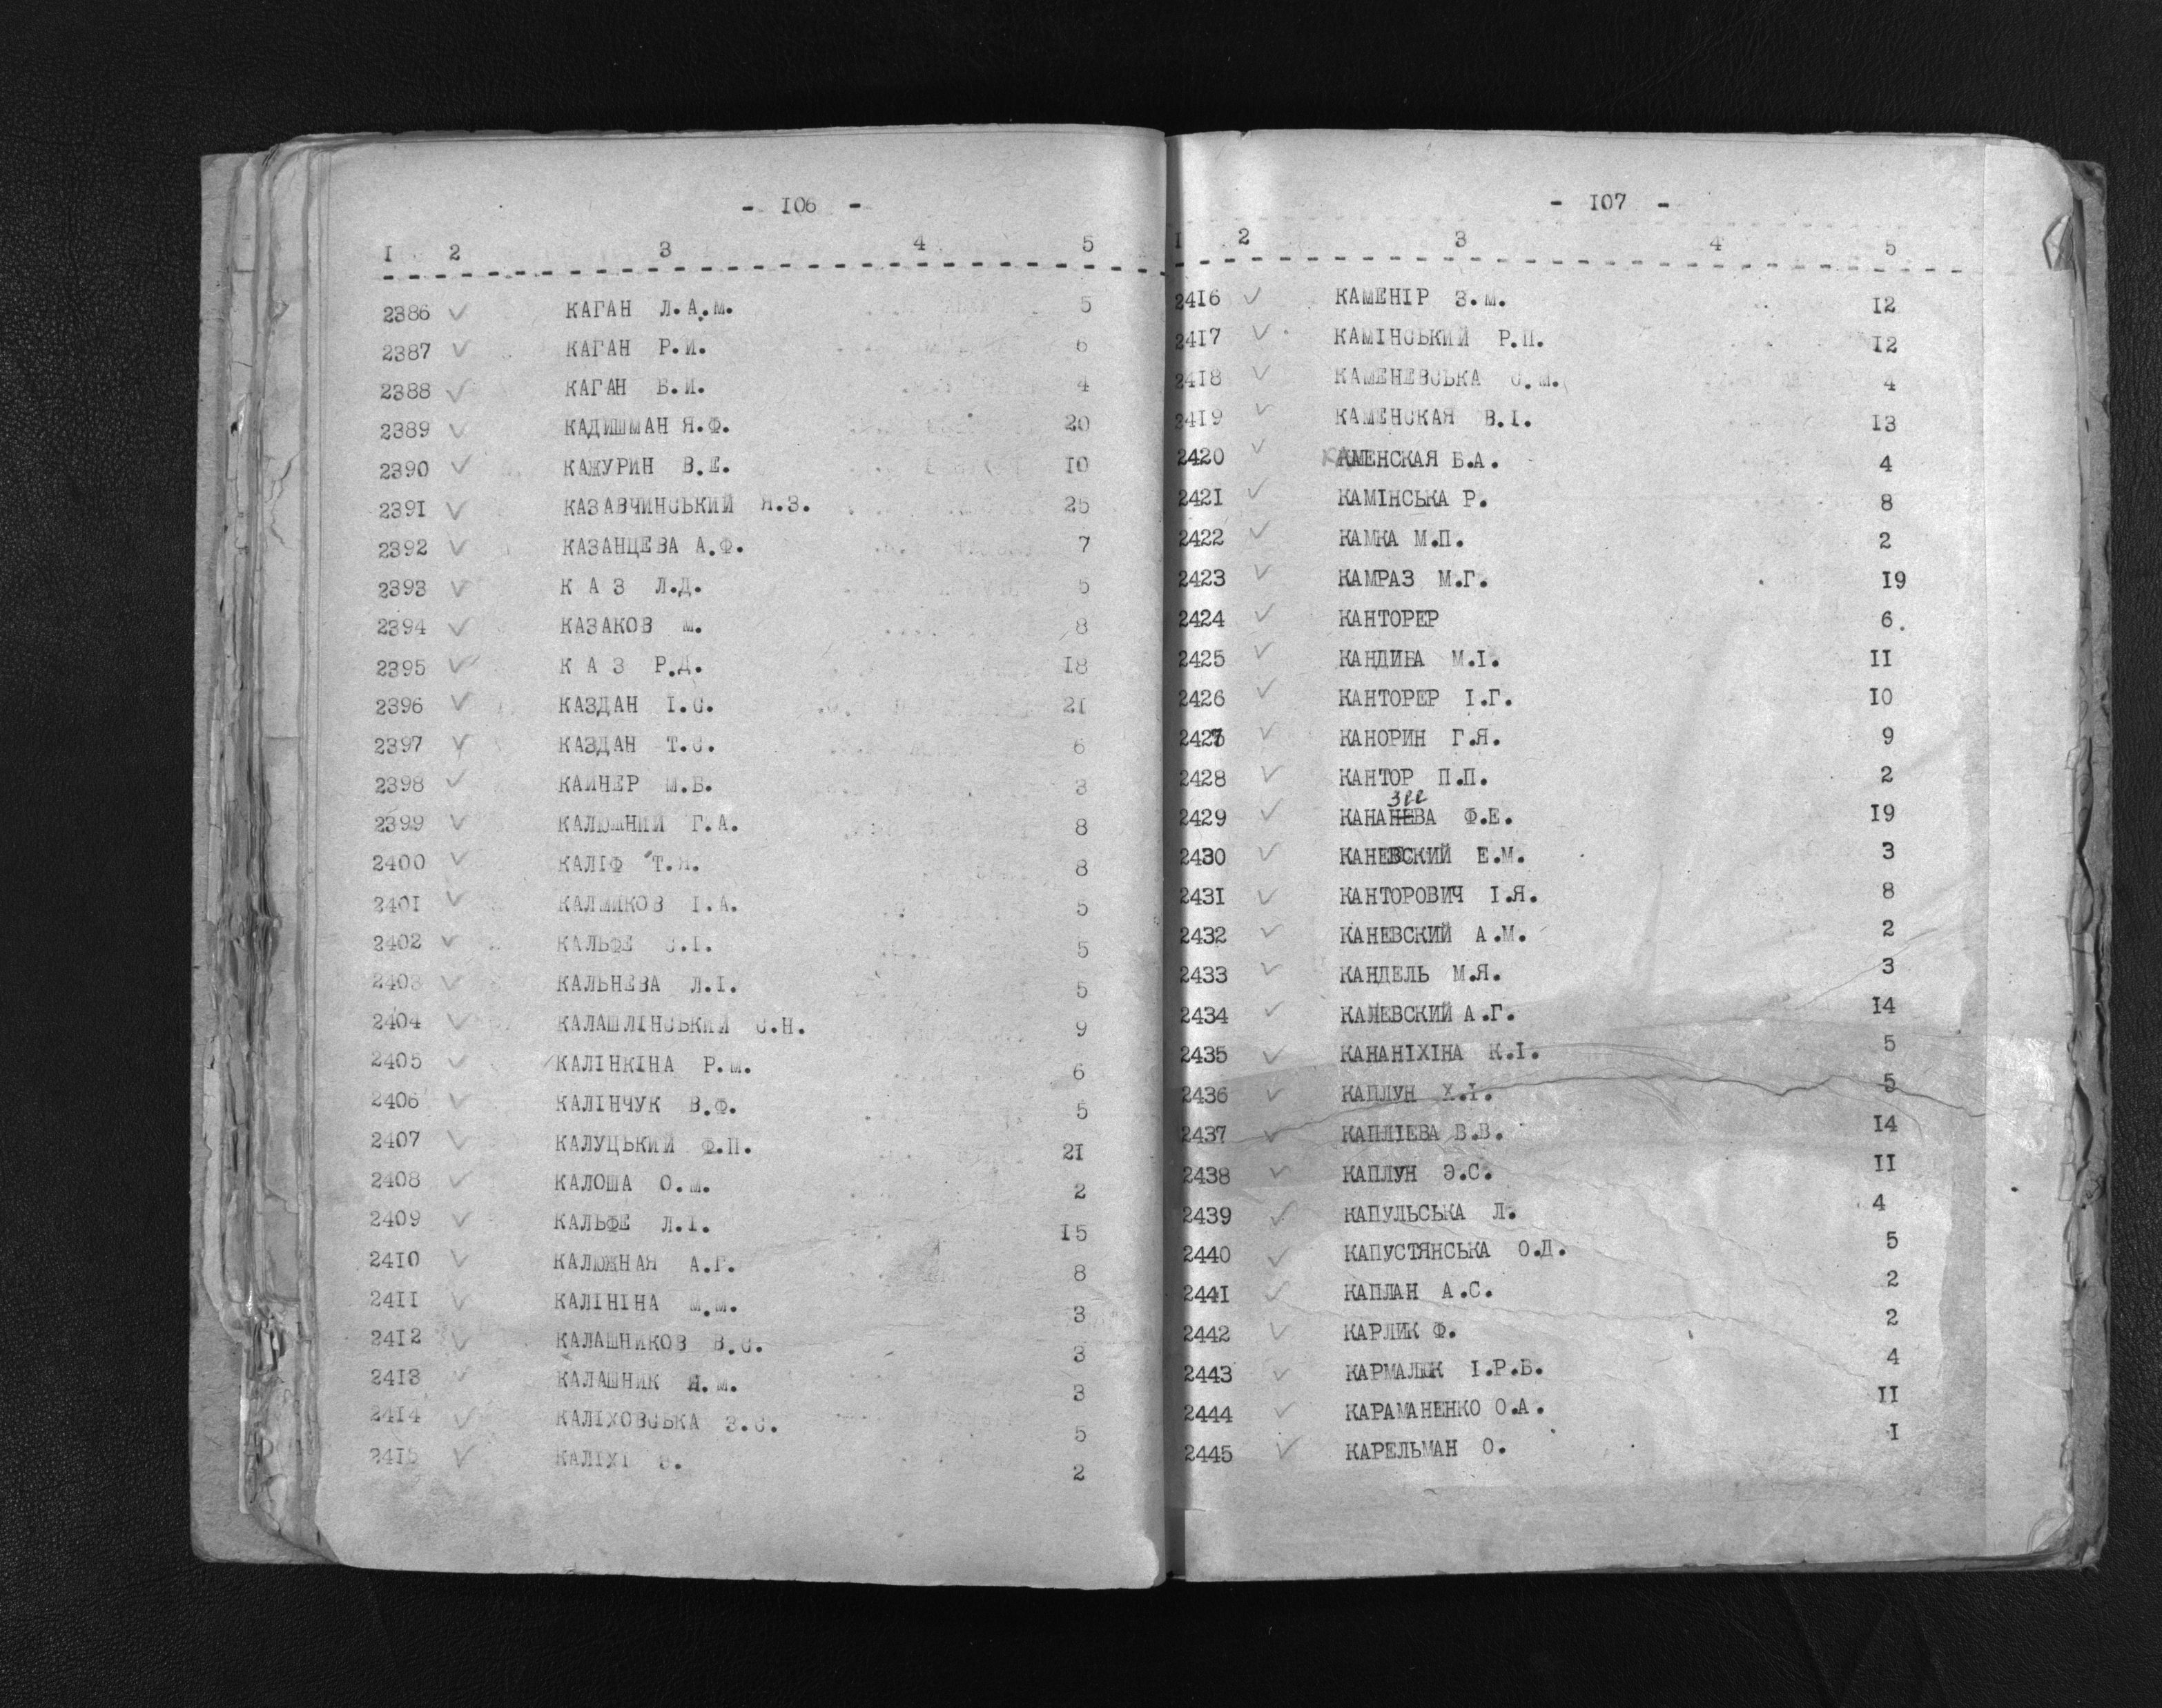 - 106 -
1 2 3 4 5
2386 ✓ КАГАН Л.А.М. 5
2387 ✓ КАГАН Р.И. 6
2388 ✓ КАГАН Б.И. 4
2389 ✓ КАДИШМАН Я.Ф. 20
2390 ✓ КАЖУРИН В.Е. 10
2391 ✓ КАЗАВЧИНСЬКИЙ Я.З. 25
2392 ✓ КАЗАНЦЕВА А.Ф. 7
2393 ✓ К А З Л.Д. 5
2394 ✓ КАЗАКОВ М. 8
2395 ✓ К А З Р.Д. 18
2396 ✓ КАЗДАН І.С. 21
2397 ✓ КАЗДАН Т.С. 6
2398 ✓ КАЙНЕР М.Б. 3
2399 ✓ КАЛЮЖНИЙ Г.А. 8
2400 ✓ КАЛІФ Т.Я. 8
2401 ✓ КАЛМИКОВ І.А. 5
2402 ✓ КАЛЬФЕ С.І. 5
2403 ✓ КАЛЬНЕВА Л.І. 5
2404 ✓ КАЛАШЛІНСЬКИЙ С.Н. 9
2405 ✓ КАЛІНКІНА Р.М. 6
2406 ✓ КАЛІНЧУК В.Ф. 5
2407 ✓ КАЛУЦЬКИЙ Ф.П. 21
2408 ✓ КАЛОША О.М. 2
2409 ✓ КАЛЬФЕ Л.І. 15
2410 ✓ КАЛЮЖНАЯ А.Г. 8
2411 ✓ КАЛІНІНА М.М. 3
2412 ✓ КАЛАШНИКОВ В.С. 3
2413 ✓ КАЛАШНИК Я.М. 3
2414 ✓ КАЛІХОВСЬКА З.С. 5
2415 ✓ КАЛІХІ 2
- 107 -
1 2 3 4 5
2416 ✓ КАМЕНІР З.М. 12
2417 ✓ КАМІНСЬКИЙ Р.П. 12
2418 ✓ КАМЕНЕВСЬКА С.М. 4
2419 ✓ КАМЕНСКАЯ В.І. 13
2420 ✓ КАМЕНСКАЯ Б.А. 4
2421 ✓ КАМІНСЬКА Р. 8
2422 ✓ КАМКА М.П. 2
2423 ✓ КАМРАЗ М.Г. 19
2424 ✓ КАНТОРЕР 6
2425 ✓ КАНДИБА М.І. 11
2426 ✓ КАНТОРЕР І.Г. 10
2427 ✓ КАНОРИН Г.Я. 9
2428 ✓ КАНТОР П.П. 2
2429 ✓ КАНАНЕВА Ф.Е. 19
2430 ✓ КАНЕВСКИЙ Е.М. 3
2431 ✓ КАНТОРОВИЧ І.Я. 8
2432 ✓ КАНЕВСКИЙ А.М. 2
2433 ✓ КАНДЕЛЬ М.Я. 3
2434 ✓ КАНЕВСКИЙ А.Г. 14
2435 ✓ КАНАНІХІНА К.І. 5
2436 ✓ КАПЛУН Х.І. 5
2437 ✓ КАПЛІЕВА В.В. 14
2438 ✓ КАПЛУН Э.С. 11
2439 ✓ КАПУЛЬСЬКА Л. 4
2440 ✓ КАПУСТЯНСЬКА О.Д. 5
2441 ✓ КАПЛАН А.С. 2
2442 ✓ КАРЛИК Ф. 2
2443 ✓ КАРМАЛЮК І.Р.Б. 4
2444 ✓ КАРАМАНЕНКО О.А. 11
2445 ✓ КАРЕЛЬМАН О. 1